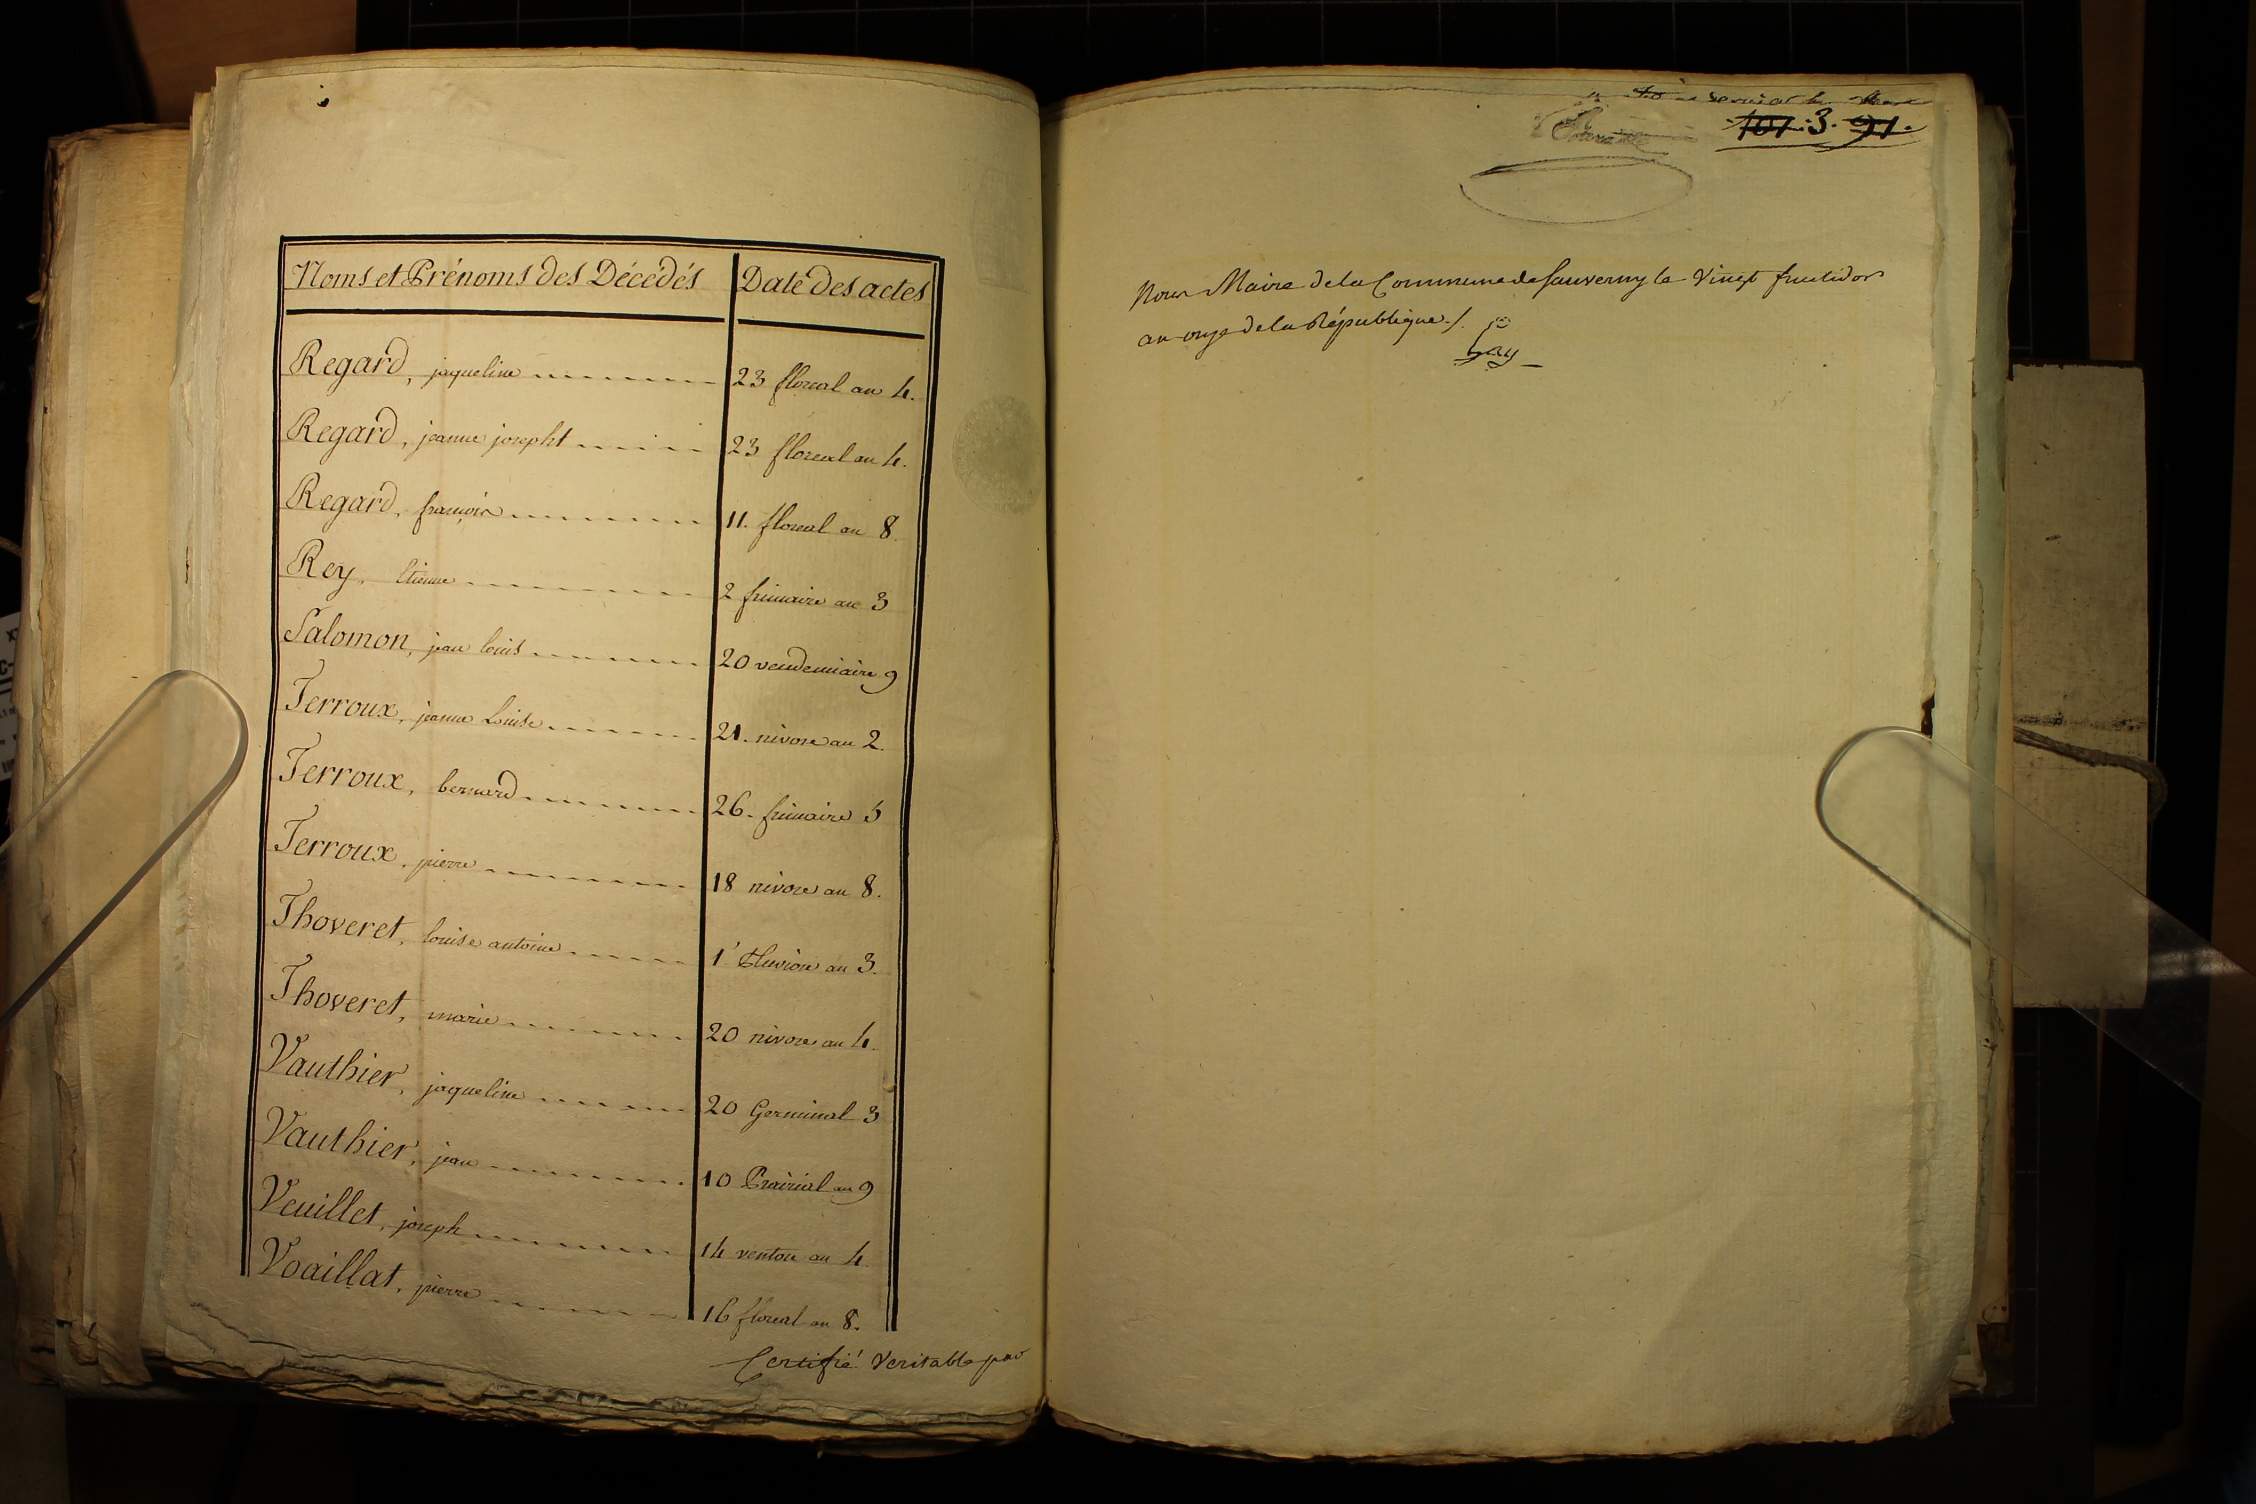 Noms et Prénoms des Décédés Date des actes
Regard, jaqueline 23 floreal an 4.
Regard, jeanne josepht 23 floreal an 4.
Regard, françois 11. floreal an 8
Rey, Etienne 2 frimaire an 3
Salomon, jean louis 20 vendemiaire 9
Terroux, jeanne Louise 21. nivose an 2.
Terroux, bernard 26. frimaire 5
Terroux, pierre 18 nivose an 8.
Thoveret, louise antoine 1r Pluviose an 3.
Thoveret, marie 20 nivose an 4.
Vauthier, jaqueline 20 Germinal 3
Vauthier, jean 10 Prairial an 9
Veuillet, joseph 14 ventose an 4
Voaillat, pierre 16 floreal an 8.
Certifié Veritable par
101. 3. 91.
Nous Maire de la Commune de Sauverny le Vingt fructidor
an onze de la République ./.
Gay